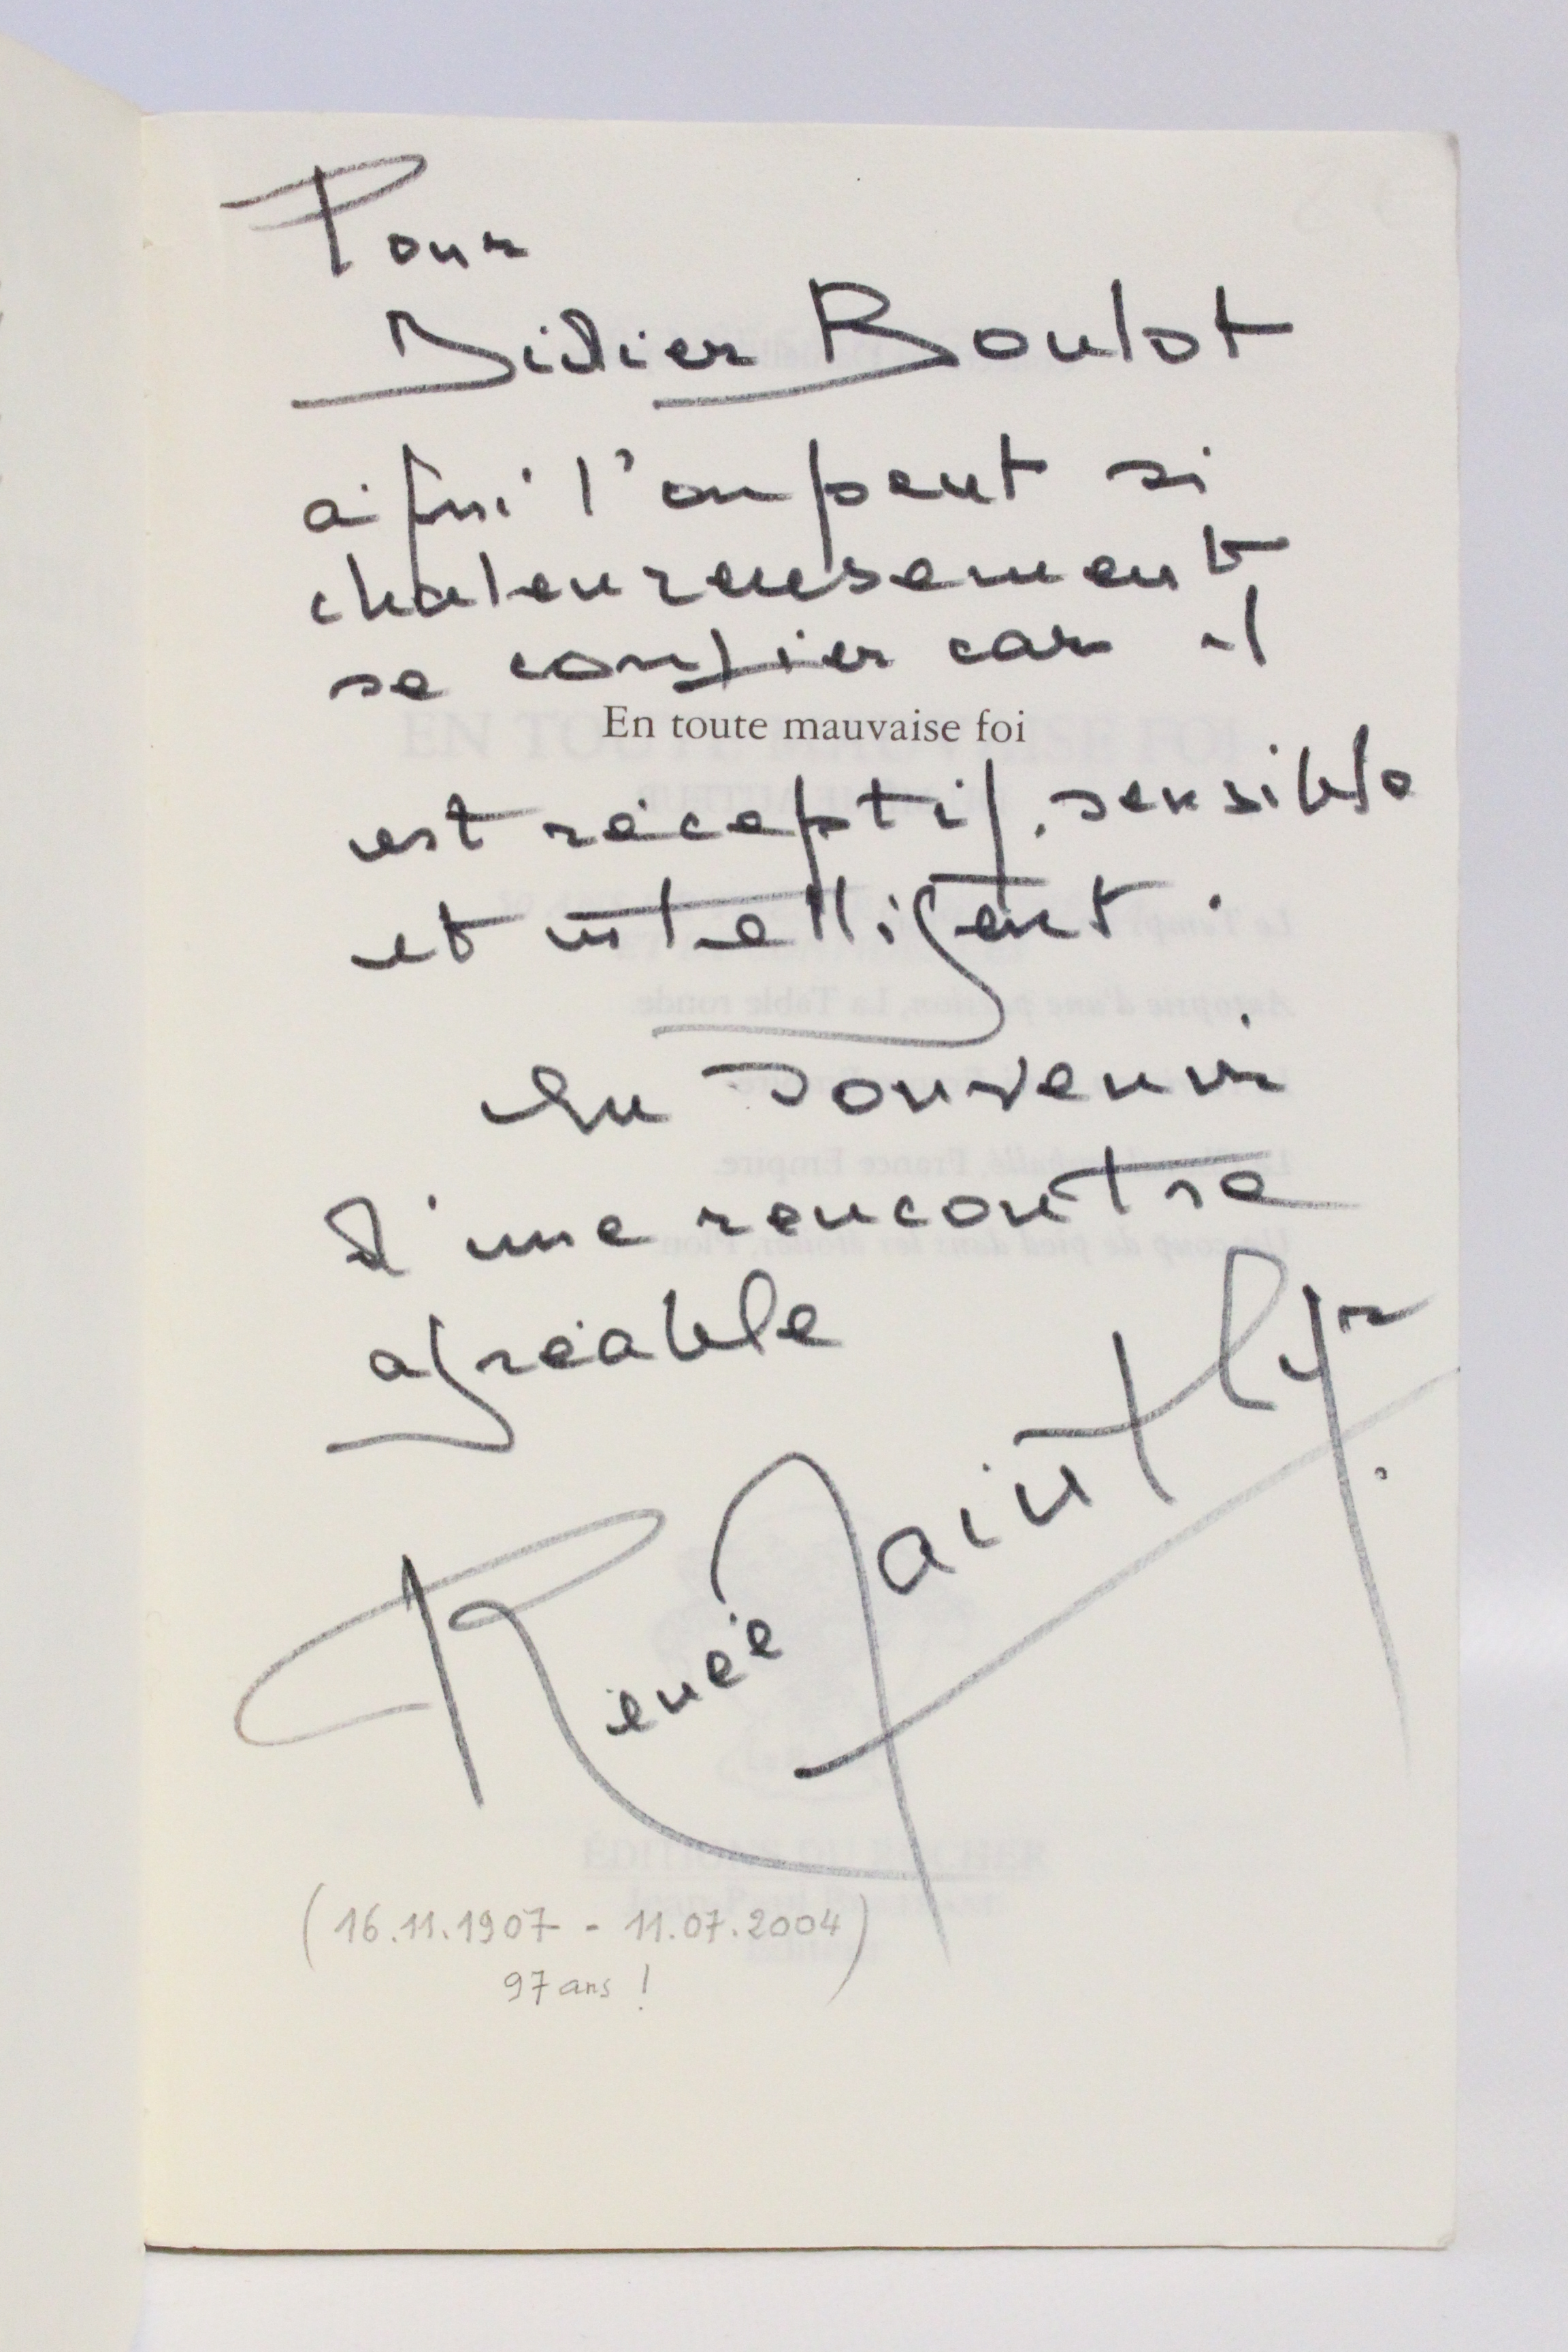 Pour
Didier Boulot
à qui l'on peut si
chaleureusement
se confier car il
En toute mauvaise foi
est réceptif, sensible
et intelligent.
En souvenir
d'une rencontre
agréable
Renée Saint Cyr.
(16.11.1907 - 11.07.2004)
97 ans !